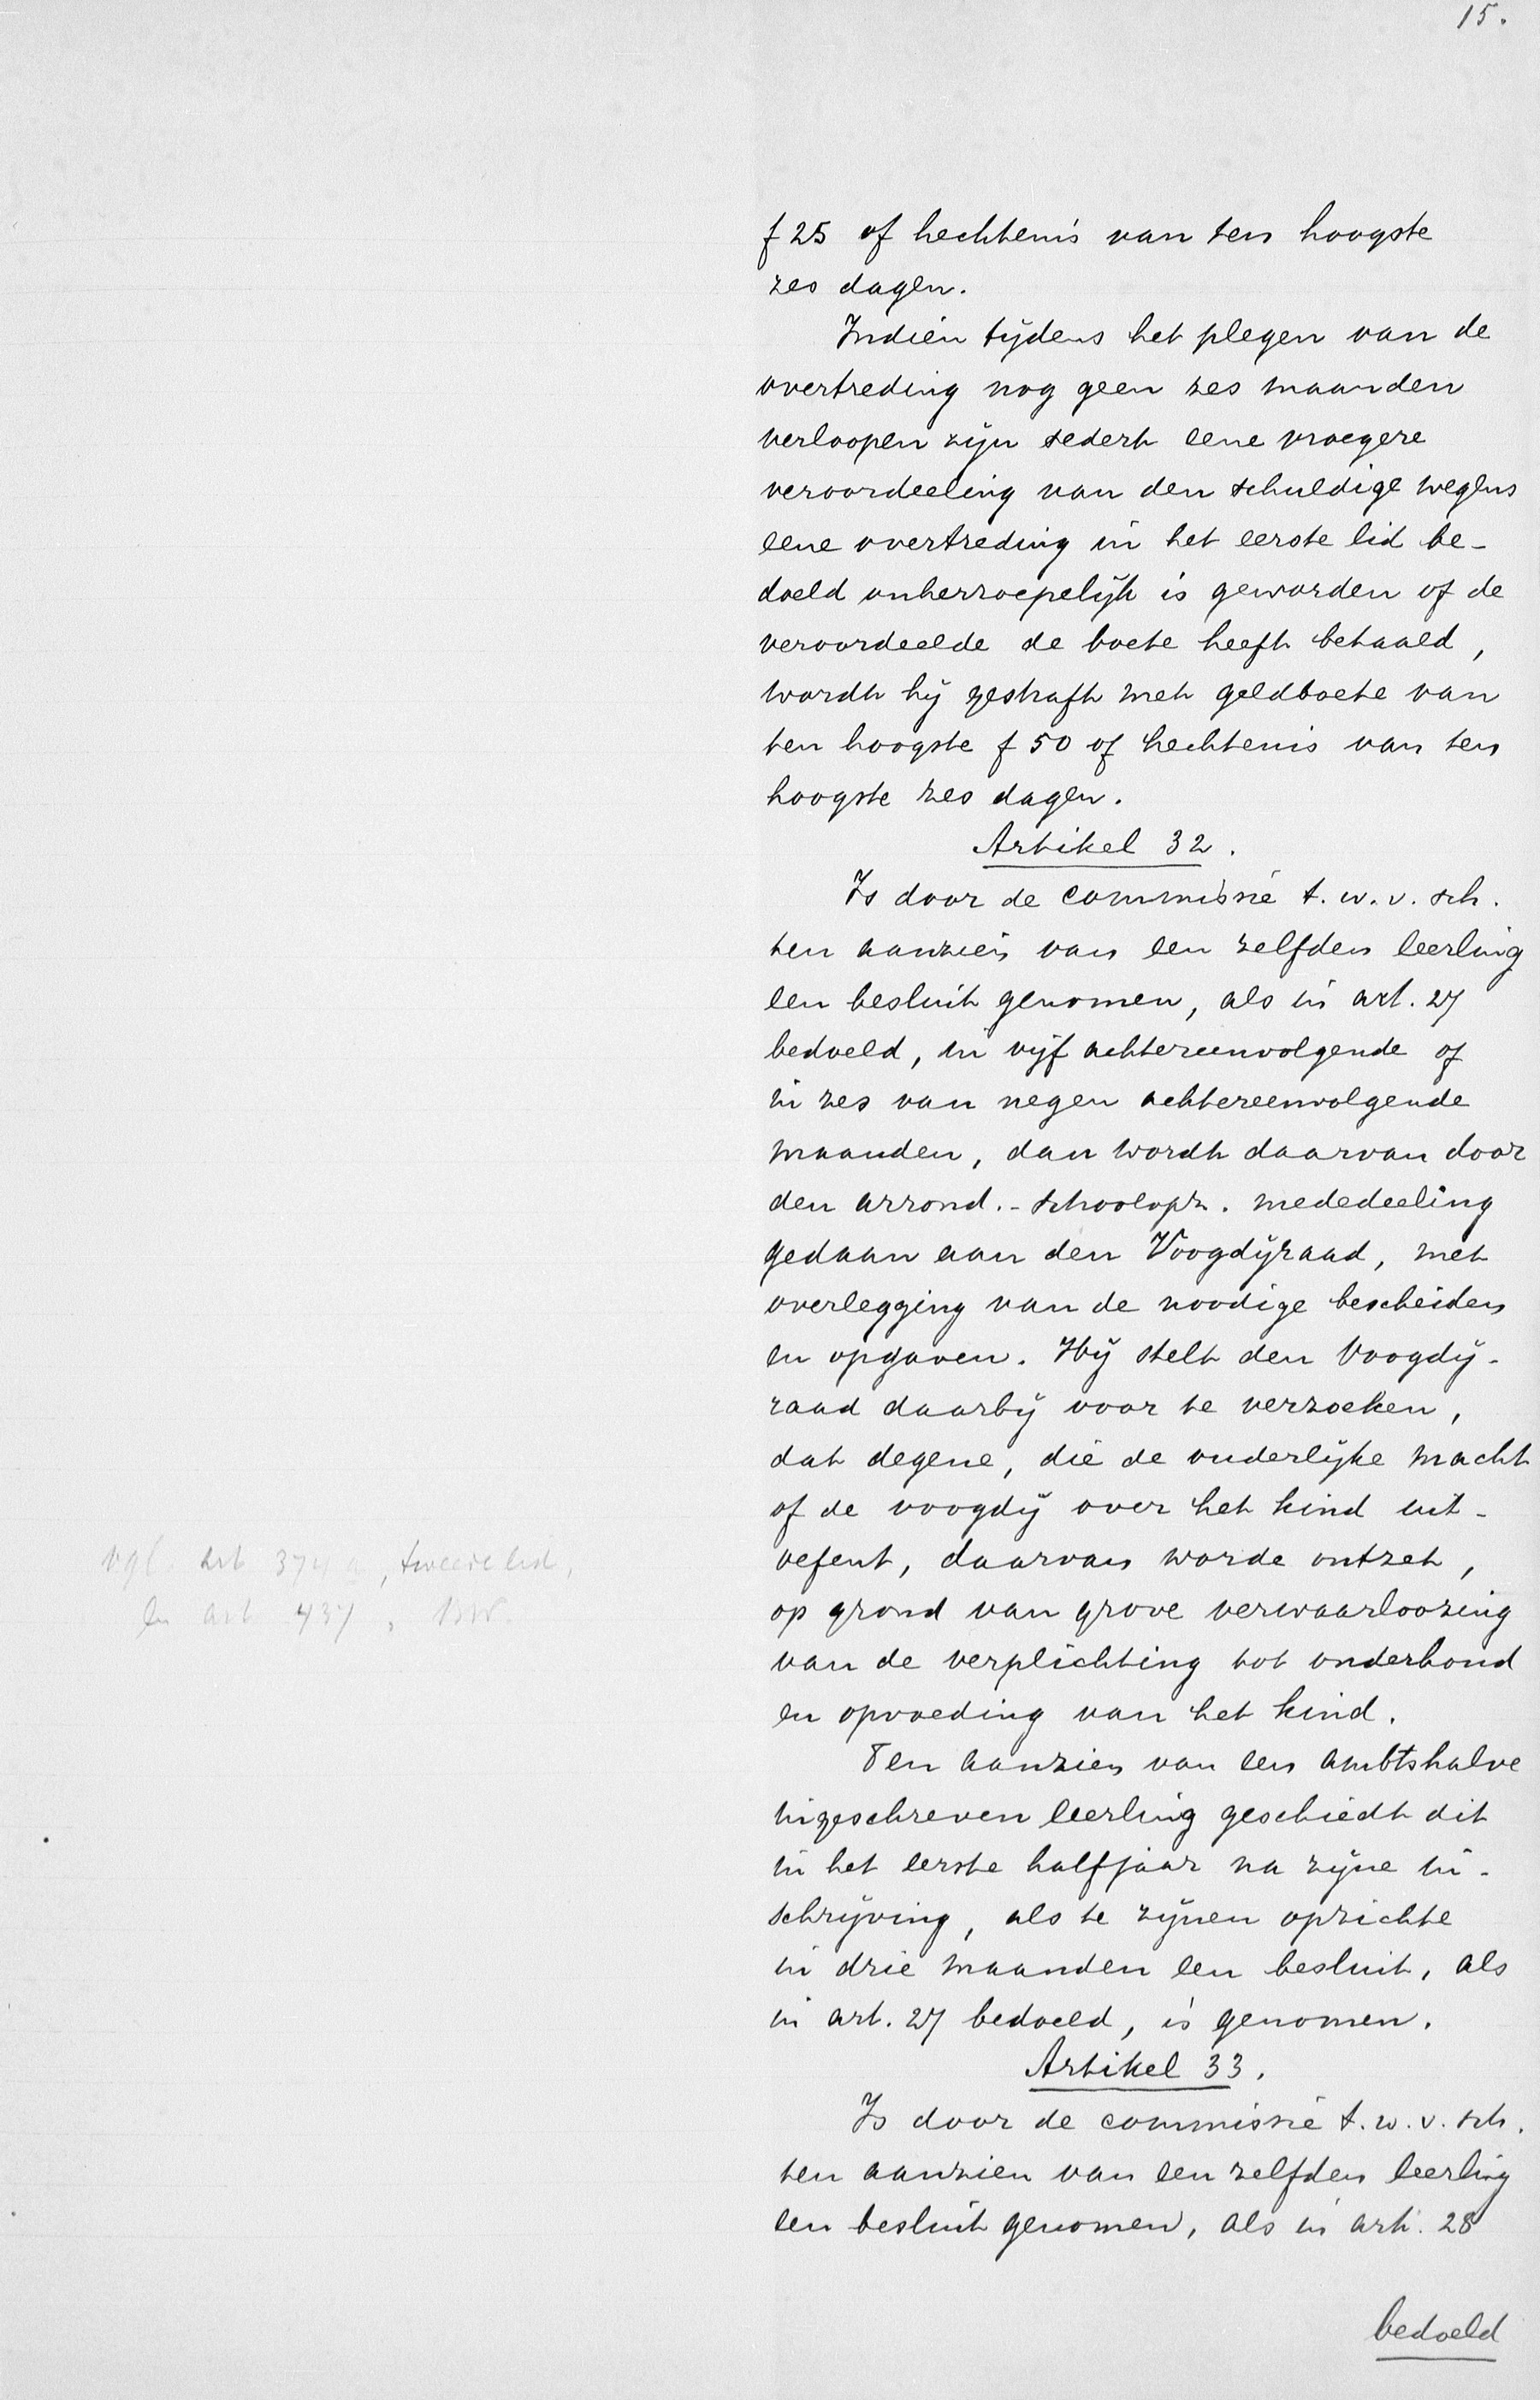 15.
f 25 of hechtenis van ten hoogste
zes dagen.
Indien tijdens het plegen van de
overtreding nog geen zes maanden
verloopen zijn sedert eene vroegere
veroordeeling van den schuldige wegens
eene overtreding in het eerste lid be-
doeld onherroepelijk is geworden of de
veroordeelde de boete heeft betaald,
wordt hij gestraft met geldboete van
ten hoogste f 50 of hechtenis van ten
hoogste zes dagen.
Artikel 32.
Is door de commissie t. w. v. sch.
ten aanzien van een zelfden leerling
een besluit genomen, als in art. 27
bedoeld, in vijf achtereenvolgende of
in zes van negen achtereenvolgende
maanden, dan wordt daarvan door
den arrond.-schoolopz. mededeeling
gedaan aan den Voogdijraad, met
overlegging van de noodige bescheiden
en opgaven. Hij stelt den Voogdij-
raad daarbij voor te verzoeken,
dat degene, die de ouderlijke macht
of de voogdij over het kind uit-
oefent, daarvan worde ontzet,
op grond van grove verwaarloozing
van de verplichting tot onderhoud
en opvoeding van het kind.
vgl. art 374 a, tweede lid,
en art 437, BW.
Ten aanzien van een ambtshalve
ingeschreven leerling geschiedt dit
in het eerste halfjaar na zijne in-
schrijving, als te zijnen opzichte
in drie maanden een besluit, als
in art. 27 bedoeld, is genomen.
Artikel 33.
Is door de commissie t. w. v. sch.
ten aanzien van een zelfden leerling
een besluit genomen, als in art. 28
bedoeld